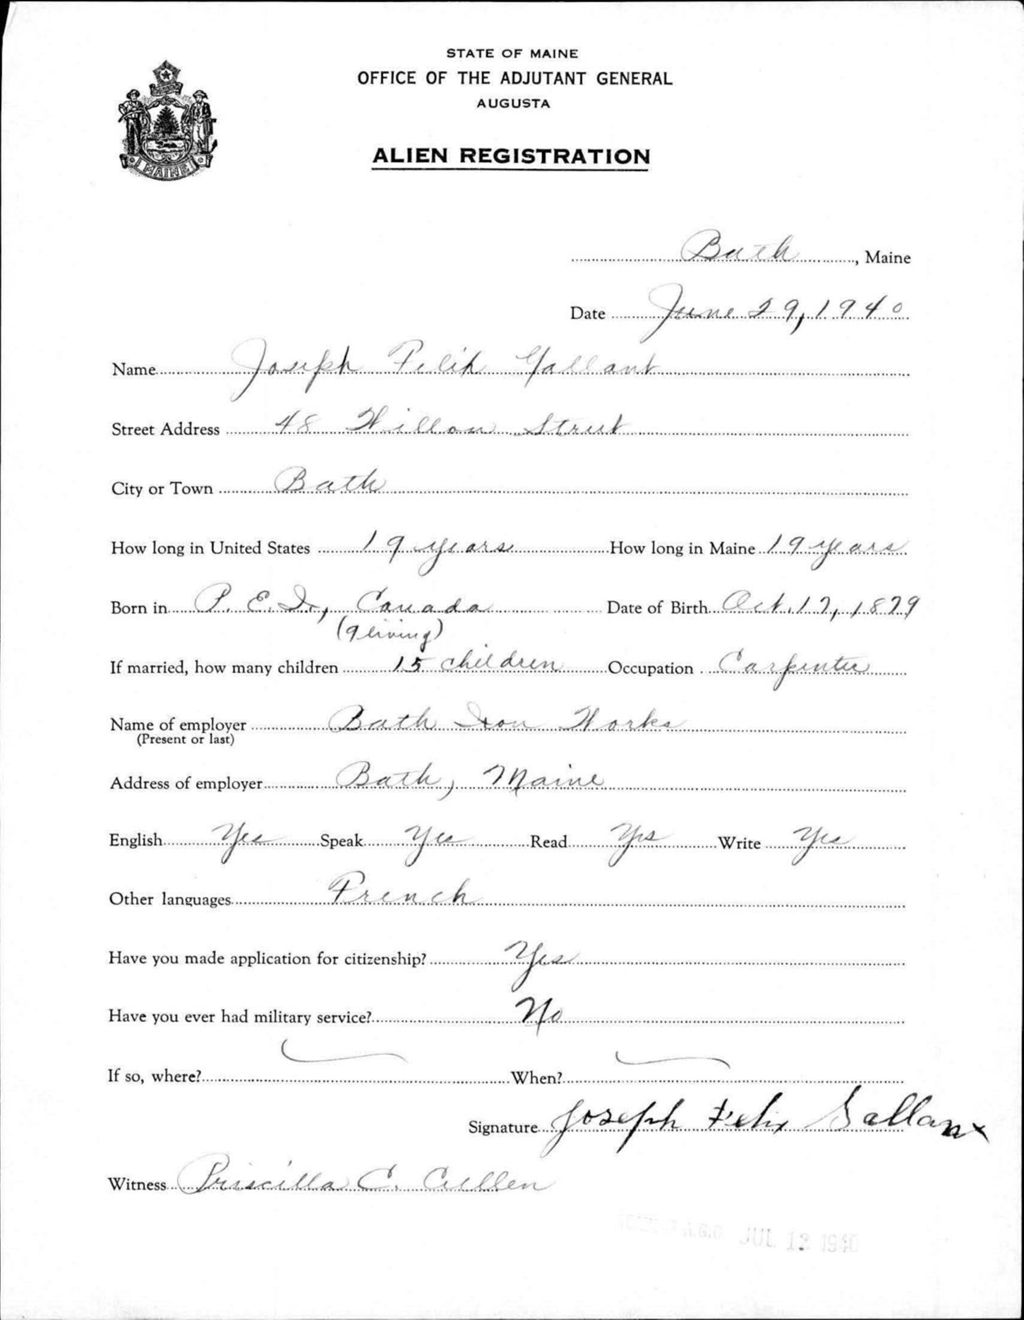 STATE OF MAINE
OFFICE OF THE ADJUTANT GENERAL
AUGUSTA
ALIEN REGISTRATION
MAINE
Bath, Maine
Date June 29, 1940
Name Joseph Felix Gallant
Street Address 48 Willow Street
City or Town Bath
How long in United States 19 years How long in Maine 19 years
Born in P. E. I., Canada Date of Birth Oct. 17, 1879
(9 living)
If married, how many children 15 children Occupation Carpenter
Name of employer Bath Iron Works
(Present or last)
Address of employer Bath, Maine
English Yes Speak Yes Read Yes Write Yes
Other languages French
Have you made application for citizenship? Yes
Have you ever had military service? No
If so, where? When?
Signature Joseph Felix Gallant
Witness Priscilla C. Cullen
A.G.O. JUL 12 1940